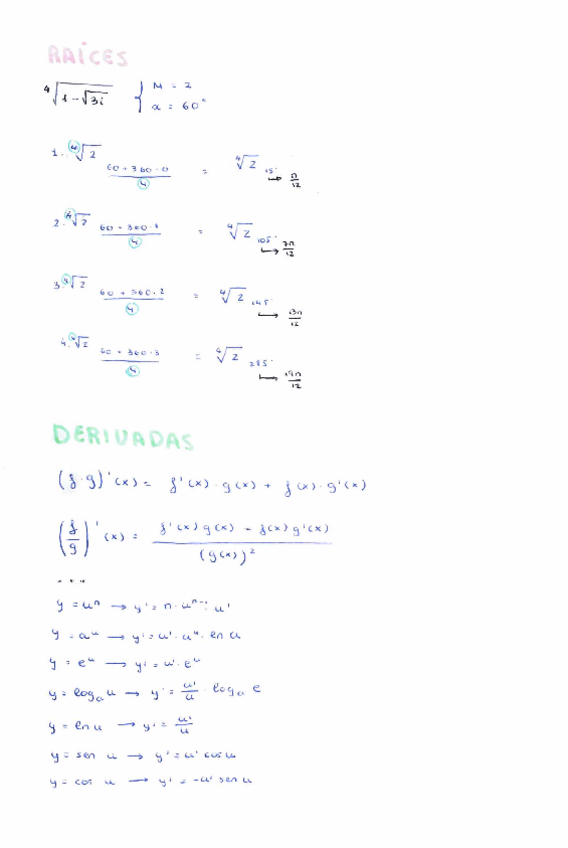 RAÍCES
⁴√(1-√3i) { M = 2
α = 60°
1. ⁴√2 (60+360·0)/4 = ⁴√2 15° → π/12
2. ⁴√2 (60+360·1)/4 = ⁴√2 105° → 7π/12
3. ⁴√2 (60+360·2)/4 = ⁴√2 195° → 13π/12
4. ⁴√2 (60+360·3)/4 = ⁴√2 285° → 19π/12
DERIVADAS
(f·g)'(x) = f'(x)·g(x) + f(x)·g'(x)
(f/g)'(x) = (f'(x)g(x) - f(x)g'(x))/(g(x))²
...
y = uⁿ → y' = n·uⁿ⁻¹·u'
y = aᵘ → y' = u'·aᵘ·ln a
y = eᵘ → y' = u'·eᵘ
y = logₐ u → y' = u'/u · logₐ e
y = ln u → y' = u'/u
y = sen u → y' = u' cos u
y = cos u → y' = -u' sen u